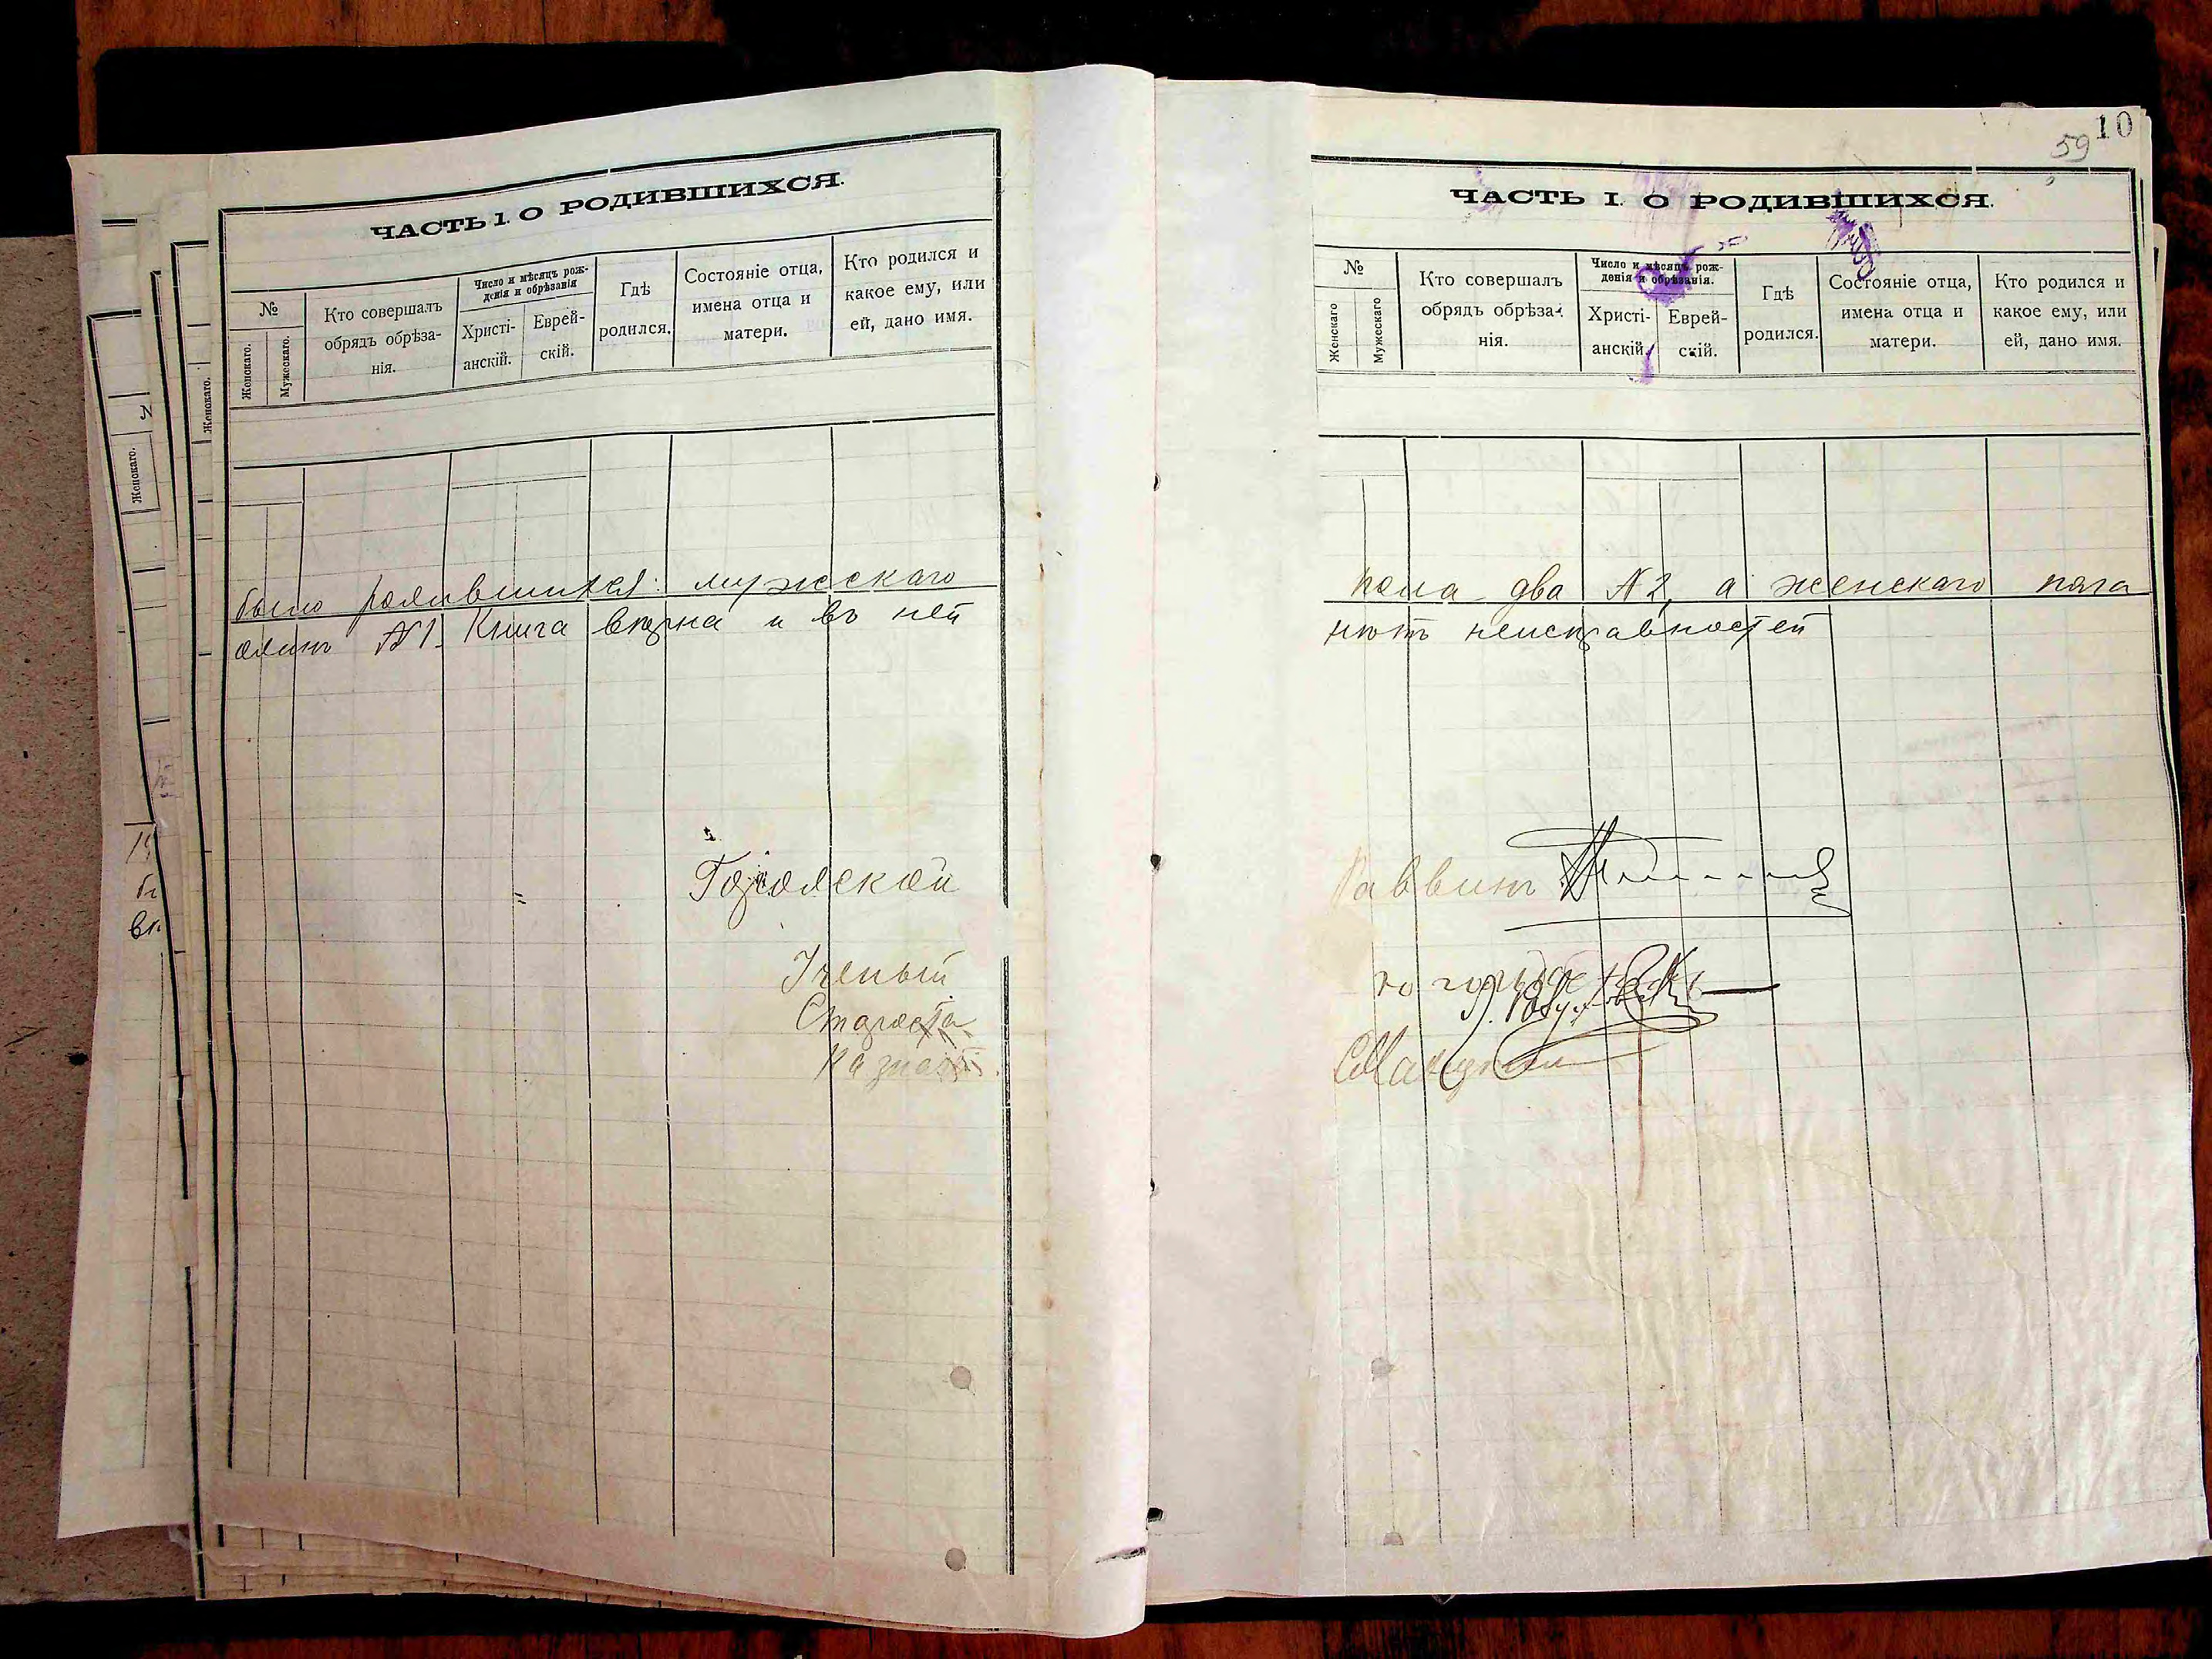 ЧАСТЬ 1. О РОДИВШИХСЯ.
№
Женскаго.
Мужескаго.
Кто совершалъ
обрядъ обрѣза-
нія.
Число и мѣсяцъ рож-
денія и обрѣзанія
Христі-
анскій.
Еврей-
скій.
Гдѣ
родился.
Состояніе отца,
имена отца и
матери.
Кто родился и
какое ему, или
ей, дано имя.
было родившихся: мужескаго
одинъ №1. Книга вѣрна и въ ней
Городской
Ученый
Староста
Казнач
№
Женскаго.
Женскаго.
59
10
ЧАСТЬ I. О РОДИВШИХСЯ.
№
Женскаго
Мужескаго
Кто совершалъ
обрядъ обрѣза-
нія.
Число и мѣсяцъ рож-
денія и обрѣзанія.
Христі-
анскій.
Еврей-
скій.
Гдѣ
родился.
Состояніе отца,
имена отца и
матери.
Кто родился и
какое ему, или
ей, дано имя.
пола два №2, а женскаго пола
нѣтъ неисправностей
Раввинъ